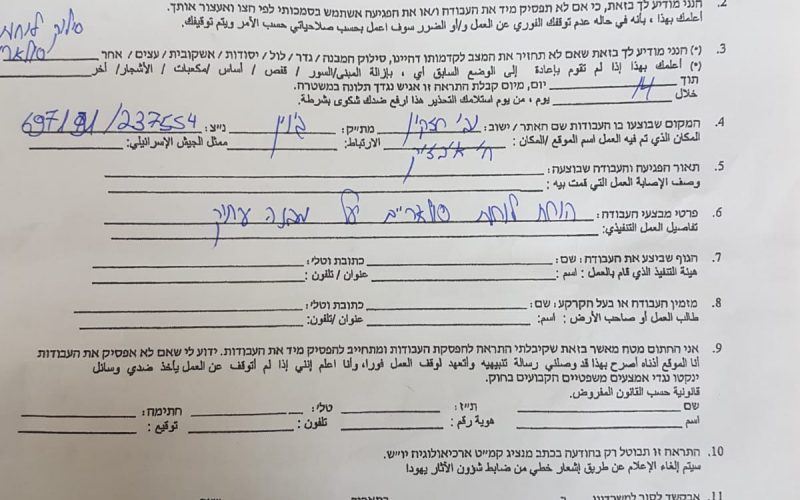 2. הנני מודיע לך בזאת, כי אם לא תפסיק מיד את העבודה ו/או את הפגיעה אשתמש בסמכותי לפי חצו ואעצור אותך.
أعلمك بهذا ، بأنه في حاله عدم توقفك الفوري عن العمل و/او الضرر سوف اعمل بحسب صلاحياتي حسب الامر ويتم توقيفك.
סילוק לוחות
סולארים
3. (*) הנני מודיע לך בזאת שאם לא תחזיר את המצב לקדמותו דהיינו, סילוק המבנה / גדר / לול / יסודות / אשקובית / עצים / אחר
(*) أعلمك بهذا إذا لم تقوم بإعادة إلى الوضع السابق أي ، بإزالة المبنى/السور / قفص / أساس /مكعبات / الأشجار/ آخر
תוך 14 יום, מיום קבלת התראה זו אגיש נגדך תלונה במשטרה.
خلال يوم ، من يوم استلامك التحذير هذا ارفع ضدك شكوى بشرطة.
4. המקום שבוצעו בו העבודות שם האתר / ישוב: מתייק: ג'נין נ״צ: 697191/237554
المكان الذي تم فيه العمل اسم الموقع /المكان: الارتباط: ممثل الجيش الإسرائيلي:
5. תאור הפגיעה והעבודה שבוצעה:
وصف الإصابة العمل التي قمت بيه :
6. פרטי מבצעי העבודה: הנחת לוחות סולארים על מבנה עתיק
تفاصيل العمل التنفيذي:
7. הגוף שביצע את העבודה: שם: כתובת וטלי:
هيئة التنفيذ الذي قام بالعمل : اسم : عنوان / تلفون :
8. מזמין העבודה או בעל הקרקע: שם: כתובת וטלי:
طالب العمل أو صاحب الأرض : اسم: عنوان /تلفون :
9. אני החתום מטה מאשר בזאת שקיבלתי התראה להפסקת העבודות ומתחייב להפסיק מיד את העבודות. ידוע לי שאם לא אפסיק את העבודות
أنا الموقع أدناه أصرح بهذا قد وصلني رسالة تنبيهيه وأتعهد لوقف العمل فورا، وأنا اعلم إنني إذا لم أتوقف عن العمل يأخذ ضدي وسائل
ינקטו נגדי אמצעים משפטיים הקבועים בחוק.
قانونية حسب القانون المفروض.
שם ת״ז: טלי: חתימה:
اسم هوية رقم : تلفون : توقيع :
10. התראה זו תבוטל רק בהודעה בכתב מנציג קמ״ט ארכיאולוגיה יו״ש.
سيتم إلغاء الإعلام عن طريق إشعار خطي من ضابط شؤون الآثار يهودا
11.